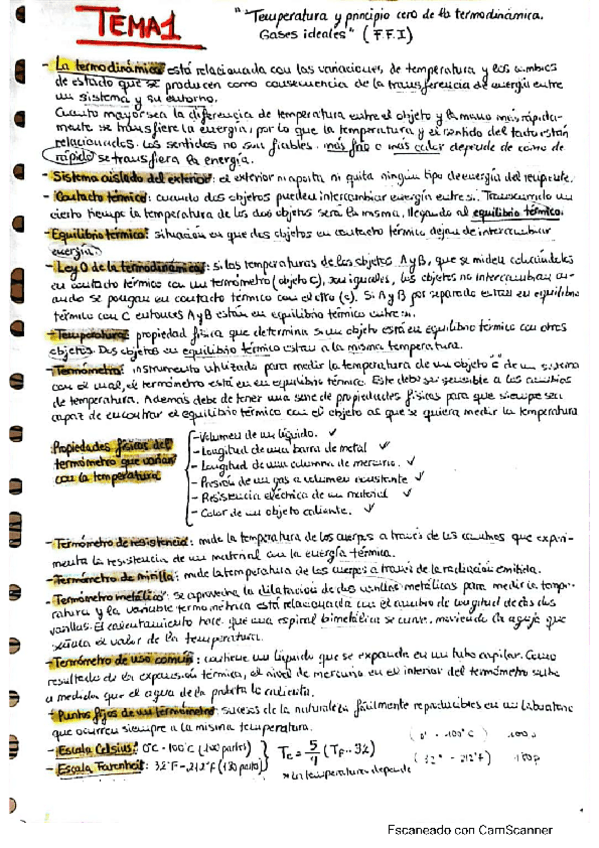 TEMA 1
"Temperatura y principio cero de la termodinámica.
Gases ideales" (F.F.I)
- La termodinámica está relacionada con las variaciones de temperatura y los cambios
de estado que se producen como consecuencia de la transferencia de energía entre
un sistema y su entorno.
Cuanto mayor sea la diferencia de temperatura entre el objeto y la mano más rápida-
mente se transfiere la energía, por lo que la temperatura y el sentido del tacto están
relacionados. Los sentidos no son fiables. más frío o más calor depende de cómo de
rápido se transfiera la energía.
- Sistema aislado del exterior: el exterior ni aporta ni quita ningún tipo de energía del recipiente.
- Contacto térmico: cuando dos objetos pueden intercambiar energía entre si. Transcurrido un
cierto tiempo la temperatura de los dos objetos será la misma, llegando al equilibrio térmico.
- Equilibrio térmico: situación en que dos objetos en contacto térmico dejan de intercambiar
energía.
- Ley 0 de la termodinámica: si las temperaturas de los objetos A y B, que se miden colocándolos
en contacto térmico con un termómetro (objeto C), son iguales, los objetos no intercambian cu-
ando se pongan en contacto térmico con el otro (c). Si A y B por separado están en equilibrio
térmico con C entonces A y B están en equilibrio térmico entre si.
- Temperatura: propiedad física que determina si un objeto está en equilibrio térmico con otros
objetos. Dos objetos en equilibrio térmico están a la misma temperatura.
- Termómetro: instrumento utilizado para medir la temperatura de un objeto o de un sistema
con el cual, el termómetro está en equilibrio térmico. Este debe ser sensible a los cambios
de temperatura. Además debe de tener una serie de propiedades físicas para que siempre sea
capaz de encontrar el equilibrio térmico con el objeto al que se quiera medir la temperatura
Propiedades físicas del
termómetro que varían
con la temperatura
- Volumen de un líquido. ✓
- Longitud de una barra de metal ✓
- Longitud de una columna de mercurio. ✓
- Presión de un gas a volumen constante ✓
- Resistencia eléctrica de un material ✓
- Color de un objeto caliente. ✓
- Termómetro de resistencia: mide la temperatura de los cuerpos a través de los cambios que experi-
menta la resistencia de un material con la energía térmica.
- Termómetro de mirilla: mide la temperatura de los cuerpos a través de la radiación emitida.
- Termómetro metálico: se aprovecha la dilatación de dos varillas metálicas para medir la tempe-
ratura y la variable termométrica está relacionada con el cambio de longitud de las dos
varillas. El calentamiento hace que una espiral bimetálica se curve, moviendo la aguja que
señala el valor de la temperatura.
- Termómetro de uso común: contiene un líquido que se expande en un tubo capilar. Como
resultado de la expansión térmica, el nivel de mercurio en el interior del termómetro sube
a medida que el agua de la probeta la calienta.
- Puntos fijos de un termómetro: sucesos de la naturaleza fácilmente reproducibles en un laboratorio
que ocurren siempre a la misma temperatura.
- Escala Celsius: 0°C - 100°C (100 partes)
- Escala Farenheit: 32°F - 212°F (180 partes)
Tc = 5/9 (TF - 32)
(0° - 100°C) 100
(32° - 212°F) 180
Escaneado con CamScanner